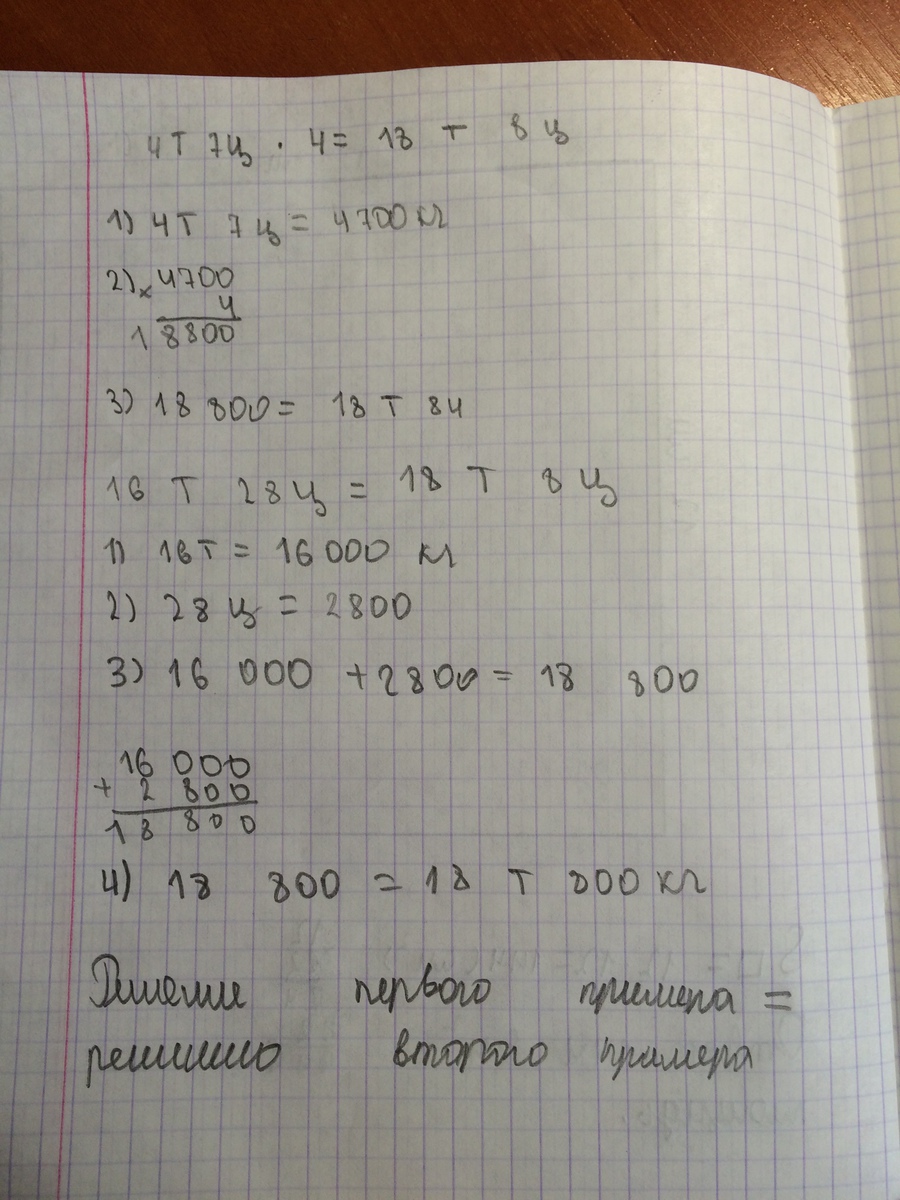 4т 7ц · 4 = 18 т 8 ц
1) 4т 7ц = 4700кг
2) × 4700
4
18800
3) 18 800 = 18 т 8ц
16 т 28ц = 18 т 8 ц
1) 16т = 16000 кг
2) 28 ц = 2800
3) 16 000 + 2800 = 18 800
16 000
+ 2 800
18 800
4) 18 800 = 18 т 800кг
Решение первого примера =
решению второго примера